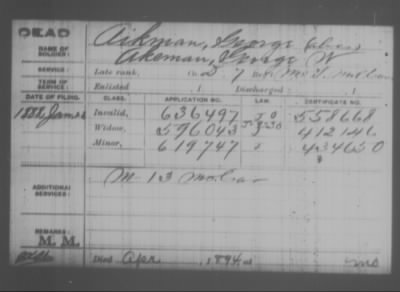 DEAD
NAME OF SOLDIER: Aikman, George (alias)
Akeman, George W
SERVICE: Late rank, Co. D 7 Reg't Mo. S. M. Cav
TERM OF SERVICE: Enlisted , 1 Discharged , 1
DATE OF FILING. CLASS. APPLICATION NO. LAW. CERTIFICATE NO.
1888 June Invalid, 636497 558668
Widow, 596043 412146
Minor, 619747 434650
ADDITIONAL SERVICES: M 13 Mo. Cav
REMARKS:
M. M.
Died Apr. , 1894, at